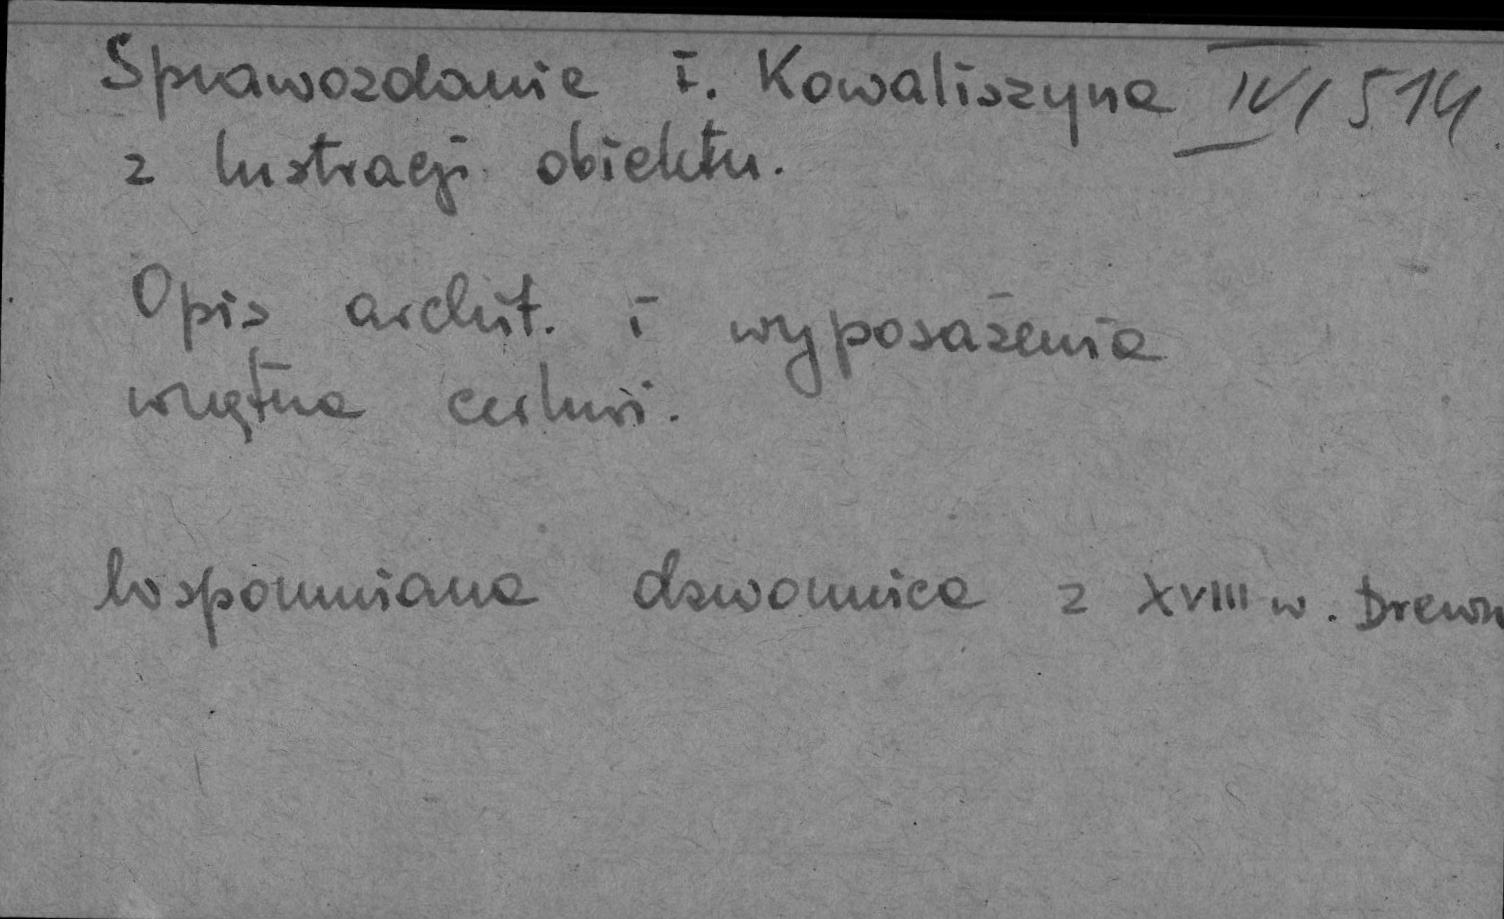 Sprawozdanie I. Kowaliszyna IV/514
z lustracji obiektu.
Opis archit. i wyposażenia
wnętrza cerkwi.
Wspomniana dzwonnica z XVIII w. Drewn